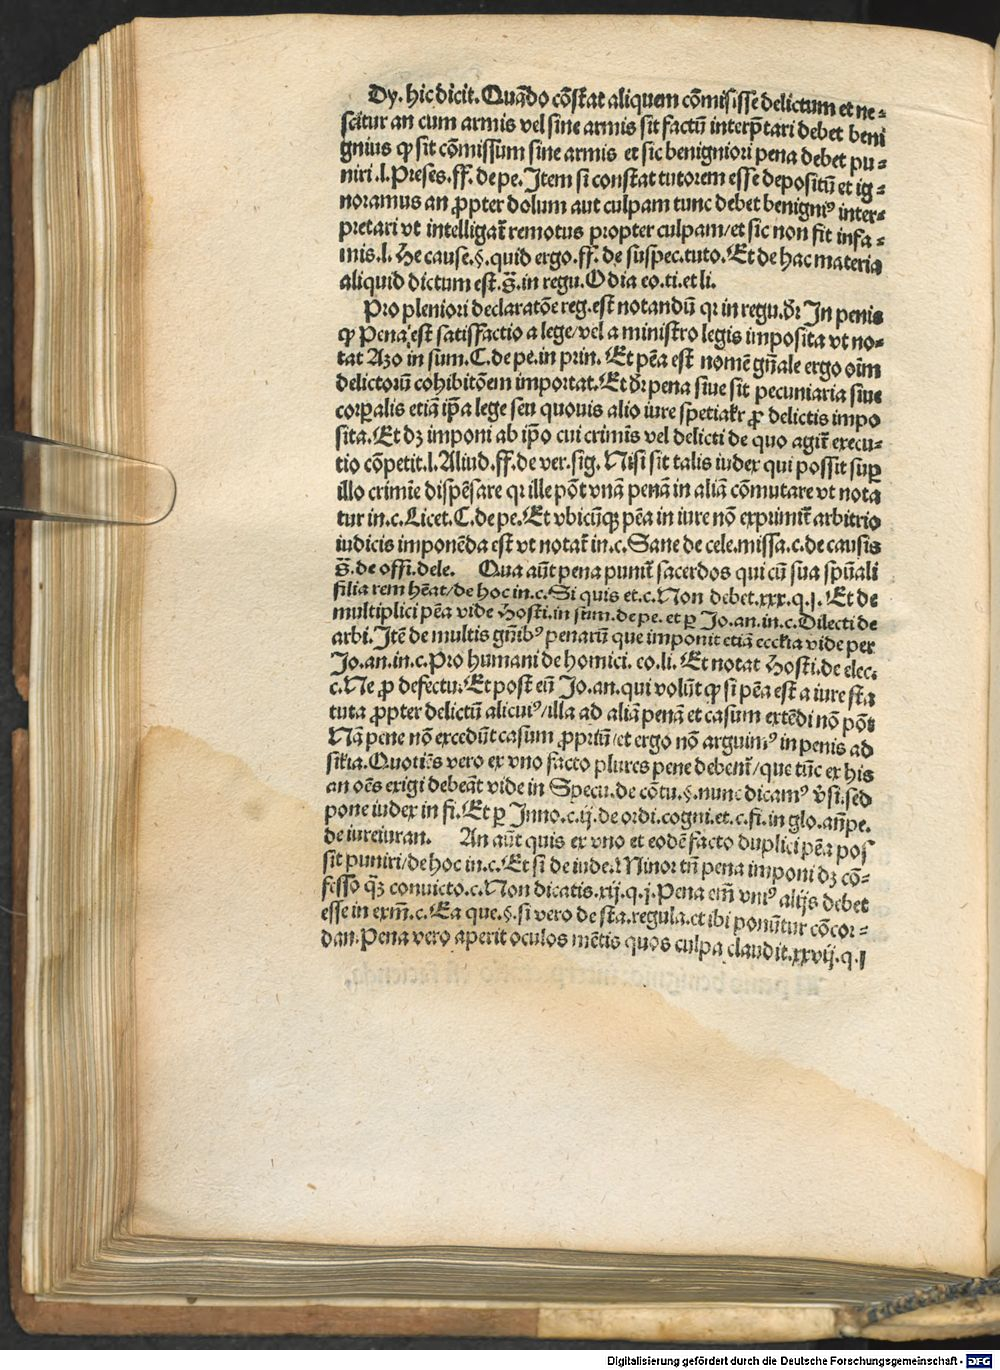 Dy. hic dicit. Quãdo cõstat aliquem cõmisisse delictum et ne⸗
scitur an cum armis vel sine armis sit factũ interp̃tari debet beni
gnius ꝙ sit cõmissum sine armis et sic benigniori pena debet pu⸗
niri .l. Preses. ff. de pe. Item si constat tutorem esse depositũ et ig⸗
noramus an ꝓpter dolum aut culpam tunc debet benigniꝰ inter⸗
pretari vt intelligat̃ remotus propter culpam/et sic non fit infa⸗
mis. l. He cause. §. quid ergo. ff. de suspec. tuto. Et de hac materia
aliquid dictum est. s̃. in regu. Odia eo. ti. et li.
Pro pleniori declaratõe reg. est notandũ qr in regu. dr̃ In penis
ꝙ Pena est satisfactio a lege/vel a ministro legis imposita vt no⸗
tat Azo in sum. C. de pe. in prin. Et pẽa est nomẽ gñale ergo oĩm
delictorũ cohibitõem importat. Et dr̃ pena siue sit pecuniaria siue
corꝑalis etiã ip̃a lege seu quouis alio iure spetialr̃ ꝓ delictis impo
sita. Et dꝫ imponi ab ip̃o cui crimĩs vel delicti de quo agit̃ execu⸗
tio cõpetit. l. Aliud. ff. de ver. sig. Nisi sit talis iudex qui possit suꝑ
illo crimĩe dispẽsare qr ille põt vnã penã in aliã cõmutare vt nota
tur in. c. Licet. C. de pe. Et vbicũqꝫ pẽa in iure nõ exprimit̃ arbitrio
iudicis imponẽda est vt notat̃ in. c. Sane de cele. missa. c. de causis
s̃. de offi. dele. Qua aũt pena punit̃ sacerdos qui cũ sua spũali
filia rem hẽat/de hoc in. c. Si quis et. c. Non debet. xxx. q. j. Et de
multiplici pẽa vide Hosti. in sum. de pe. et ꝑ Jo. an. in. c. Dilecti de
arbi. Itẽ de multis gñibꝰ penarũ que imponit etiã eccl̃ia vide per
Jo. an. in. c. Pro humani de homici. eo. li. Et notat Hosti. de elec.
c. Ne ꝓ defectu. Et post eũ Jo. an. qui volũt ꝙ si pẽa est a iure sta
tuta ꝓpter delictũ alicuiꝰ/illa ad aliã penã et casum extẽdi nõ põt
Nã pene nõ excedũt casum ꝓpriũ/et ergo nõ arguimꝰ in penis ad
sil̃ia. Quotiẽs vero ex vno facto plures pene debent̃/que tũc ex his
an oẽs exigi debeãt vide in Specu. de cõtu. §. nunc dicamꝰ v̾si. sed
pone iudex in fi. Et ꝑ Inno. c. ij. de ordi. cogni. et. c. fi. in glo. añpe.
de iureiuran. An aũt quis ex vno et eodẽ facto duplici pẽa pos
sit puniri/de hoc in. c. Et si de iude. Minor tñ pena imponi dꝫ cõ⸗
fesso qꝫ̃ conuicto. c. Non dicatis. xij. q. j. Pena em̃ vniꝰ alijs debet
esse in exm̃. c. Ea que. §. si vero de sta. regula. et ibi ponũtur cõcor⸗
dan. Pena vero aperit oculos mẽtis quos culpa claudit. xxvij. q. j
Digitalisierung gefördert durch die Deutsche Forschungsgemeinschaft - DFG